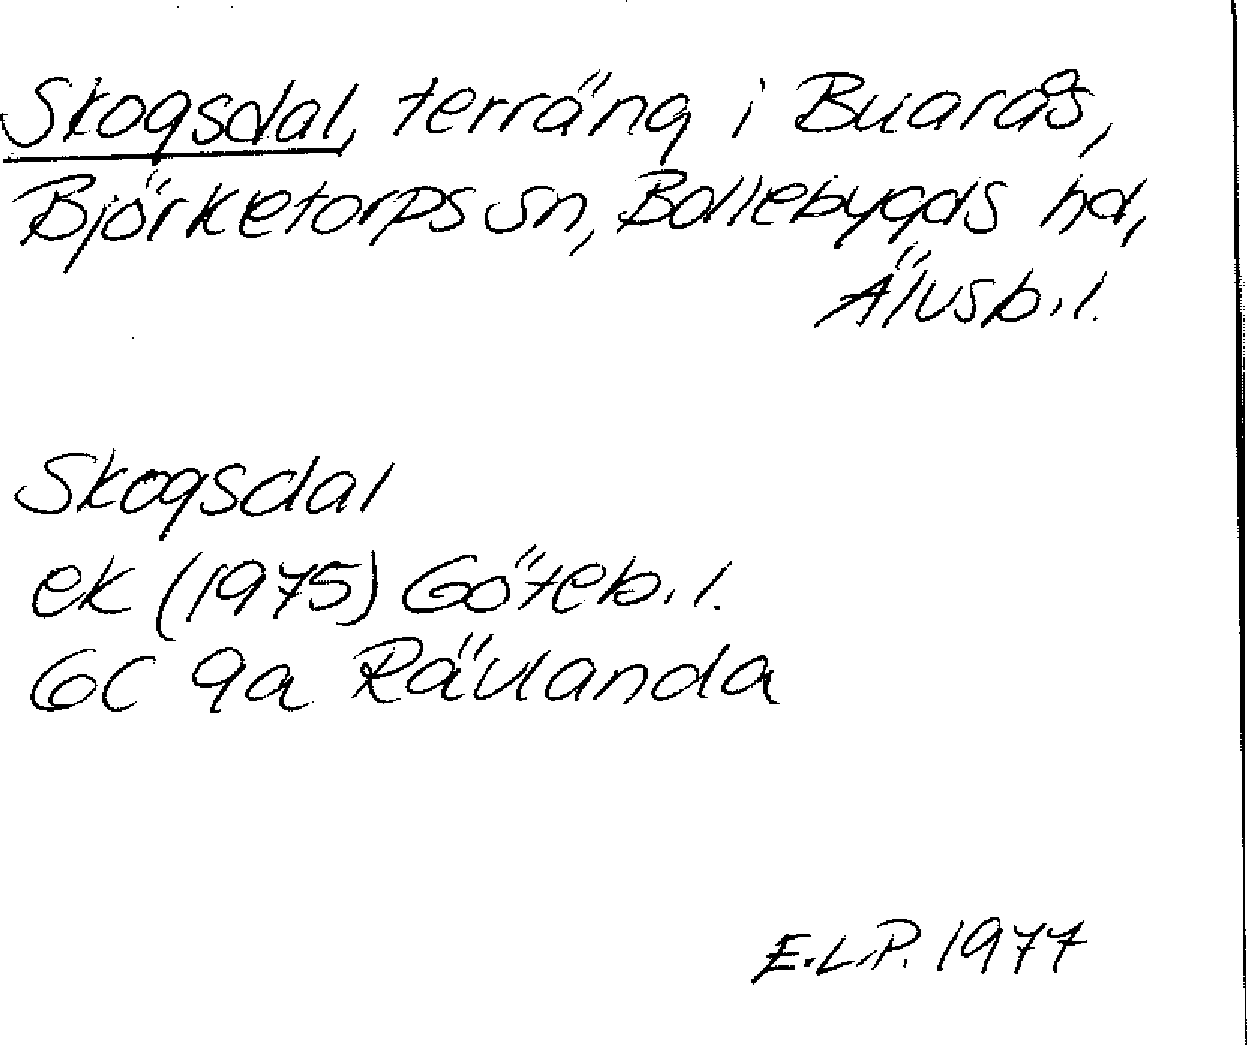 Skogsdal, terräng i Buarås,
Björketorps sn, Bollebygds hd,
Älvsb. l.
Skogsdal
ek (1975) Göteb. l.
6C 9a Rävlanda
E.L.P. 1977